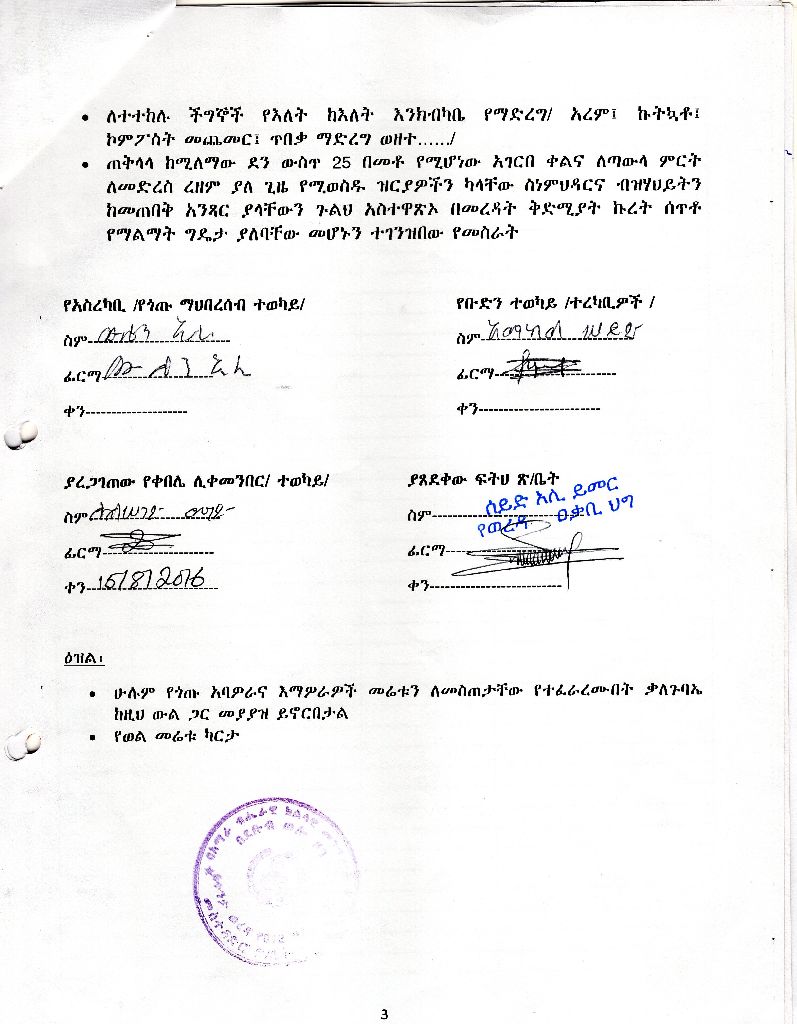 • ለተተከሉ ችግኞች የእለት ከእለት እንክብካቤ የማድረግ/ አረም፤ ኩትኳቶ፤
ኮምፖስት መጨመር፤ ጥበቃ ማድረግ ወዘተ....../
• ጠቅላላ ከሚለማው ደን ውስጥ 25 በመቶ የሚሆነው አገርበ ቀልና ለጣውላ ምርት
ለመድረስ ረዘም ያለ ጊዜ የሚወስዱ ዝርያዎችን ካላቸው ስነምህዳርና ብዝሃህይትን
ከመጠበቅ አንጻር ያላቸውን ጉልህ አስተዋጽኦ በመረዳት ቅድሚያት ኩረት ሰጥቶ
የማልማት ግዴታ ያለባቸው መሆኑን ተገንዝበው የመስራት
የአስረካቢ /የጎጡ ማህበረሰብ ተወካይ/
የቡድን ተወካይ /ተረካቢዎች /
ስም
ስም
ፊርማ
ፊርማ
ቀን
ቀን
ያረጋገጠው የቀበሌ ሊቀመንበር/ ተወካይ/
ያጸደቀው ፍትህ ጽ/ቤት
ስም
ስም ሰይድ አሊ ይመር
የወረዳ ዐቃቢ ህግ
ፊርማ
ፊርማ
ቀን 15/8/2016
ቀን
ዕዝል፡
• ሁሉም የጎጡ አባዎራና እማዎራዎች መሬቱን ለመስጠታቸው የተፈራረሙበት ቃለጉባኤ
ከዚህ ውል ጋር መያያዝ ይኖርበታል
• የወል መሬቱ ካርታ
3